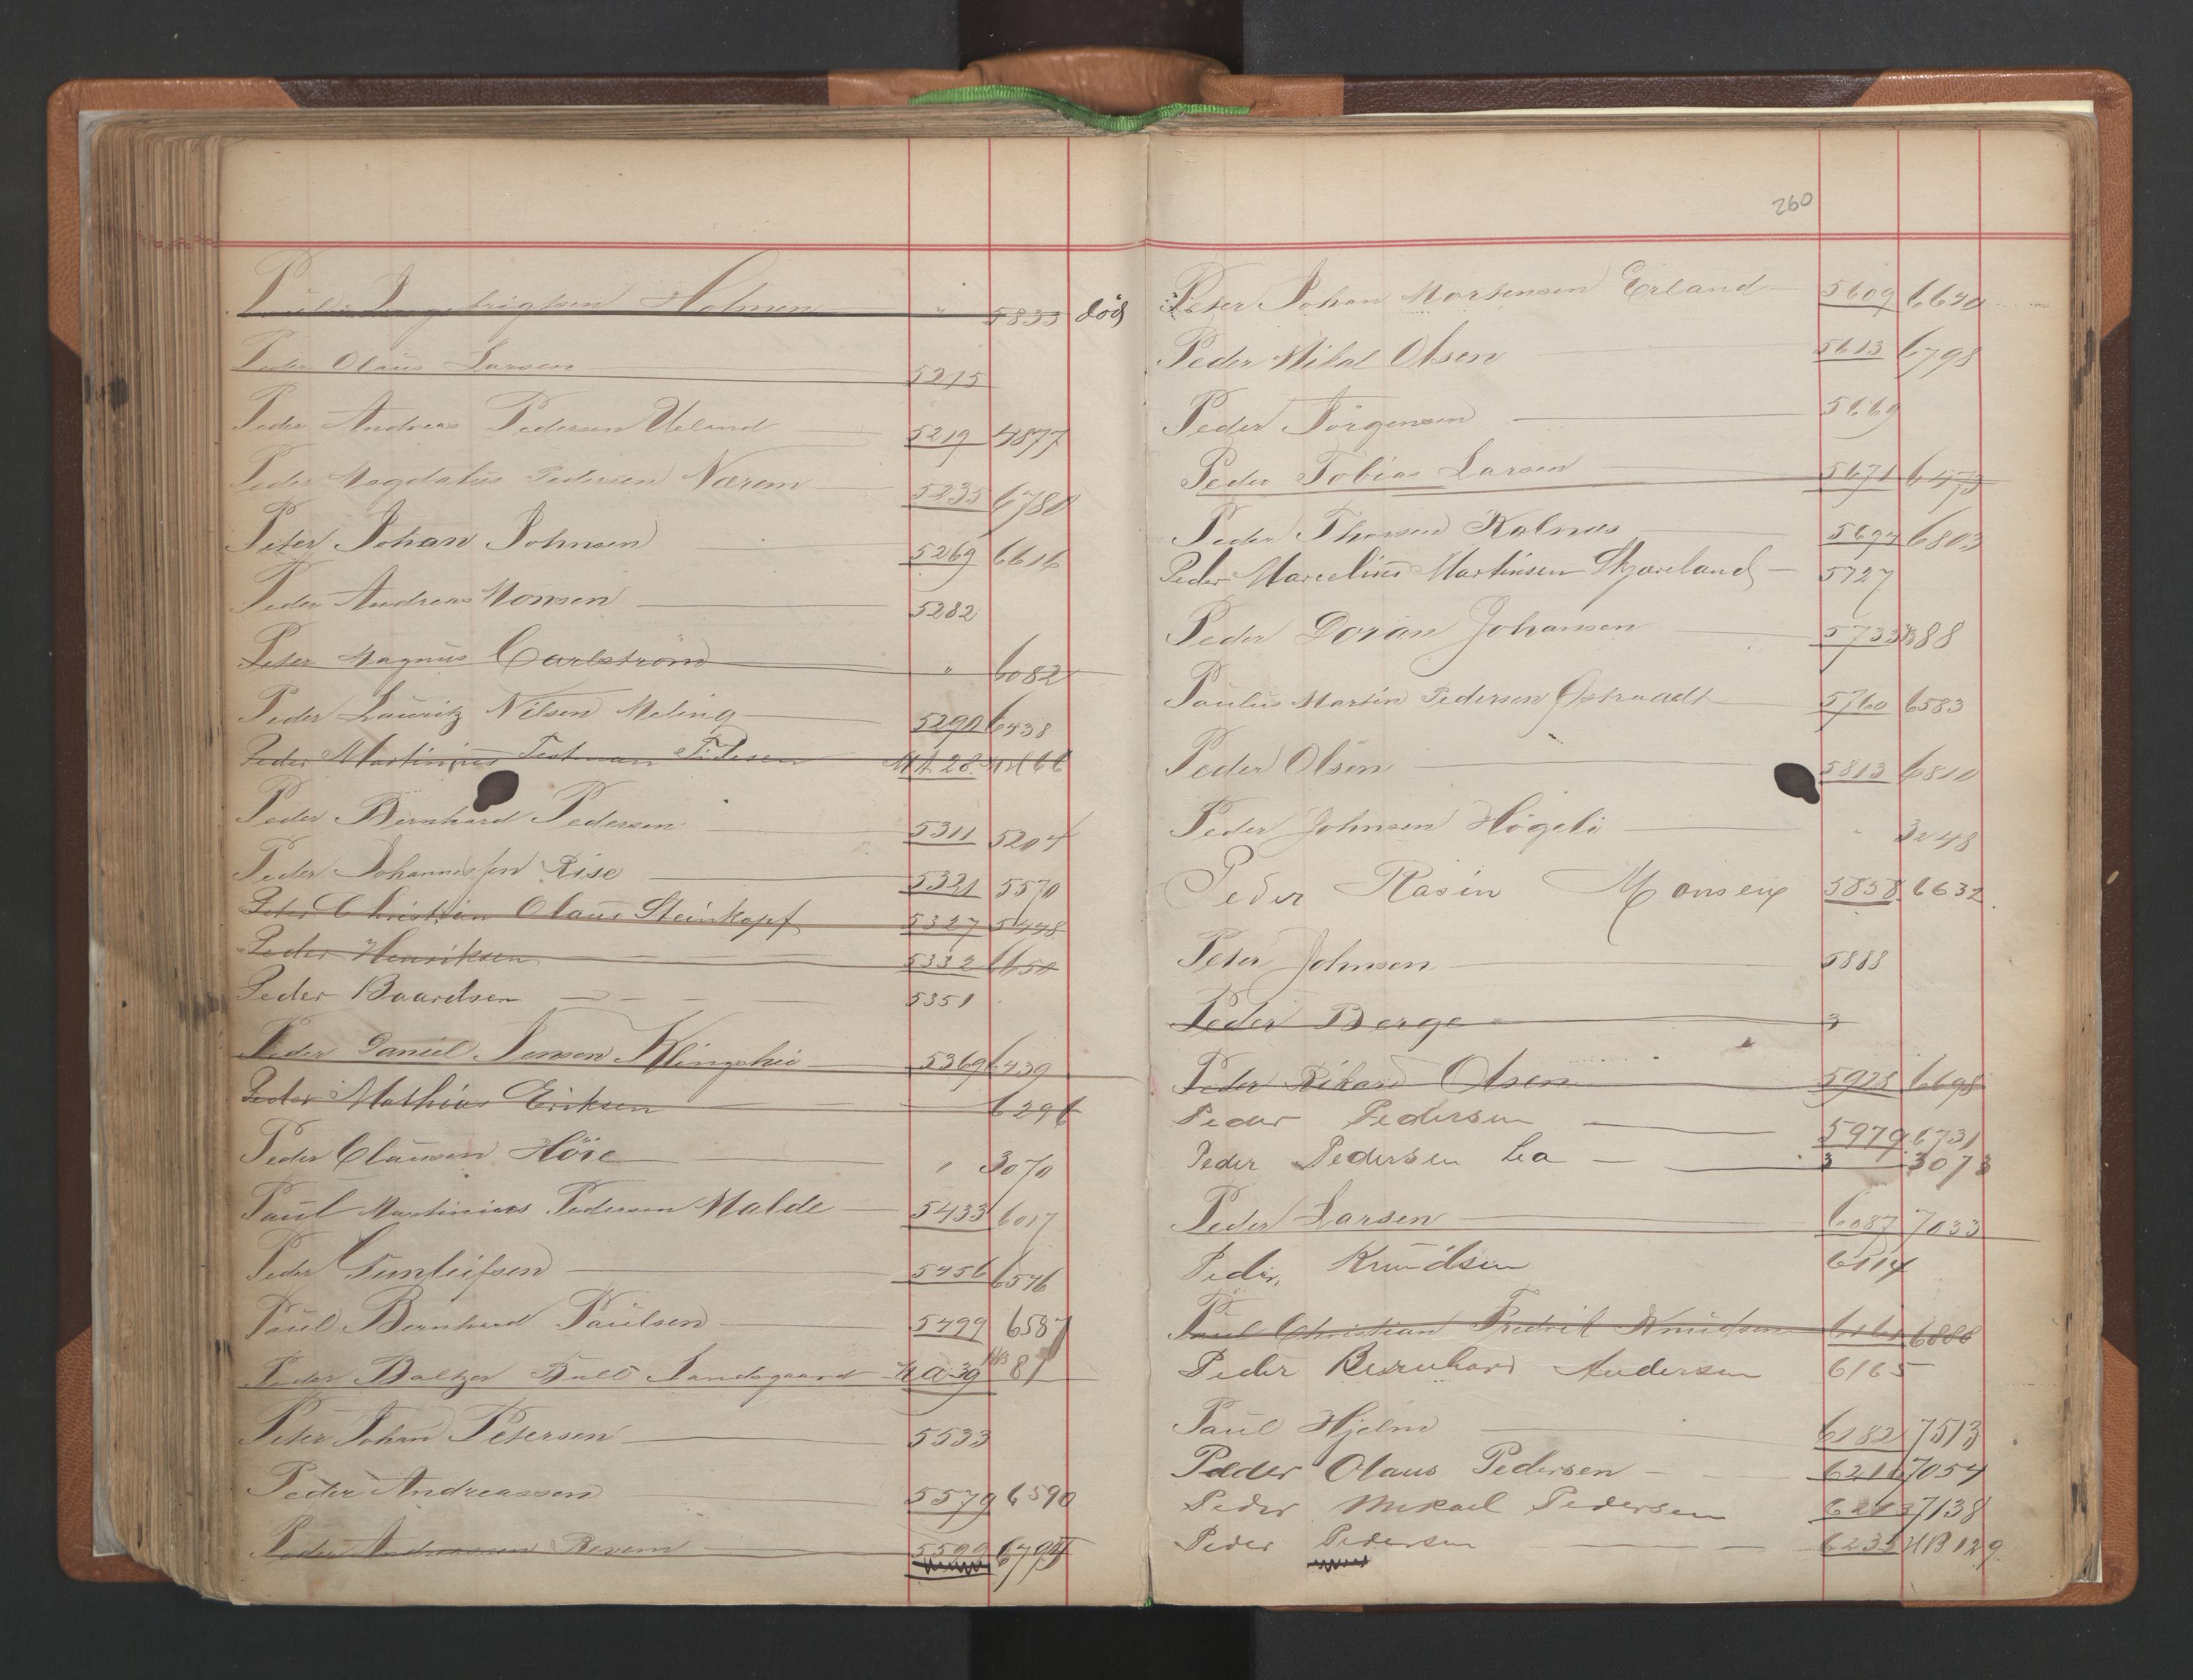 Holmen " 5833 död
Peder Olaus Larsen 5215
Peder Andreas Pedersen Ueland 5219 4877
Peder Magdalus Pedersen Nærem 5235 6780
Peter Johan Johnsen 5269 6616
Peder Andreas Monsen 5282
Peter Magnus Carlström " 6082
Peder Lauritz Nilsen Meling 5290 6438
Peder Martinius Pedersen
Peder Bernhard Pedersen 5311 5204
Peder Johannessen Rise 5321 5570
Peter Christian Olaus Steinkopf 5327 5448
Peder Henriksen 5332 6650
Peder Baardsen 5351
Peder Daniel Jensen 5369 6439
Peder Mathias Eriksen 6296
Peder Clausen Höie " 3070
Paul Martinius Pedersen Malde 5433 6017
Peder Gunleifsen 5456 6546
Paul Bernhard Paulsen 5499 6587
Peder Baltzer Sandsgaard
Peter Johan Petersen 5533
Peder Andreassen 5579 6590
Peder Andreassen Revem 5599
260
Peter Johan Mortensen Erland 5609 6640
Peder Mikal Olsen 5613 6798
Peder Jörgensen 5669
Peder Tobias Larsen 5671 6473
Peder Thorsen Kolnes 5694 6803
Peder Marcelius Martinsen Skjæveland 5727
Peder Dorian Johansen 5733 88
Paulus Martin Pedersen Östraadt 5760 6583
Peder Olsen 5813 6810
Peder Johnsen Högeli " 3248
Peder Rasin Monsen 5858 6632
Peter Johnsen 5888
Peder Berge 3
Peder Rikard Olsen 5928 6698
Peder Pedersen 5979 6731
Peder Pedersen Lea 3 3073
Peder Larsen 6087 7033
Peder Knudsen 6114
Paul Christian Fredrik Knudsen 6161 6888
Peder Bernhard Andersen 6165
Paul Hjelm 6182 7513
Peder Olaus Pedersen 7054
Peder Mikael Pedersen 7138
Peder Pedersen 6235 HB 129